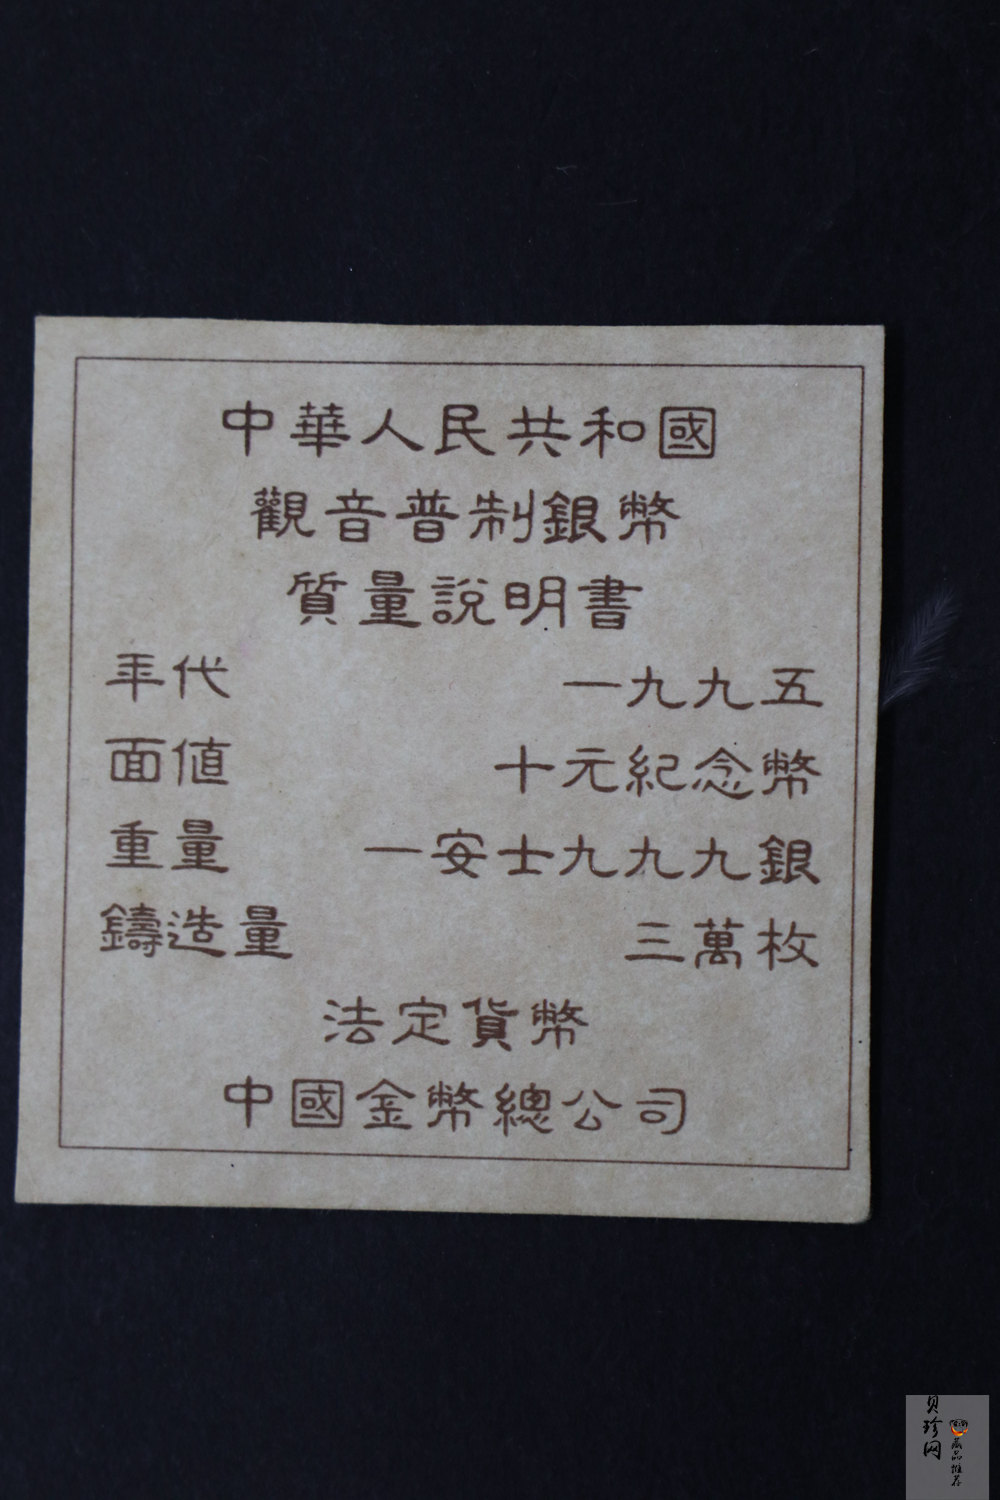 中華人民共和國
觀音普制銀幣
質量説明書
年代 一九九五
面值 十元紀念幣
重量 一安士九九九銀
鑄造量 三萬枚
法定貨幣
中國金幣總公司
贝珍网
藏品推荐